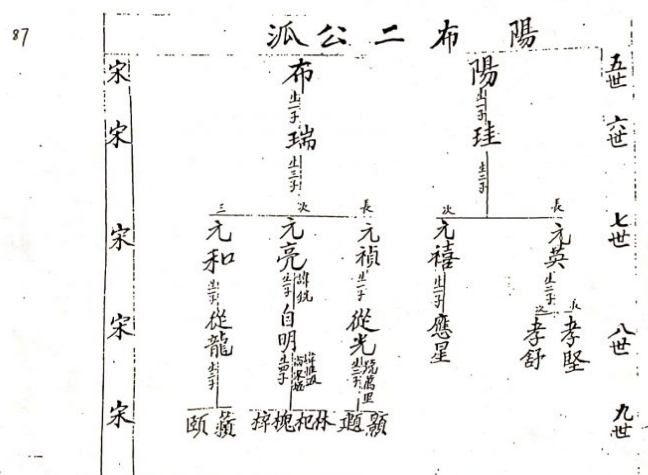 87
陽布二公派
五世
六世
七世
八世
九世
陽
生一子
珪
生二子
長
元英
生二子
長
孝堅
次
孝舒
次
元禧
生一子
應星
布
生一子
瑞
生三子
長
元禎
生一子
從光
號萬里
生二子
顥
題
次
元亮
諱統
生一子
自明
生四子
林
杞
槐
梓
三
元和
生一子
從龍
生二子
頤
宋
宋
宋
宋
宋